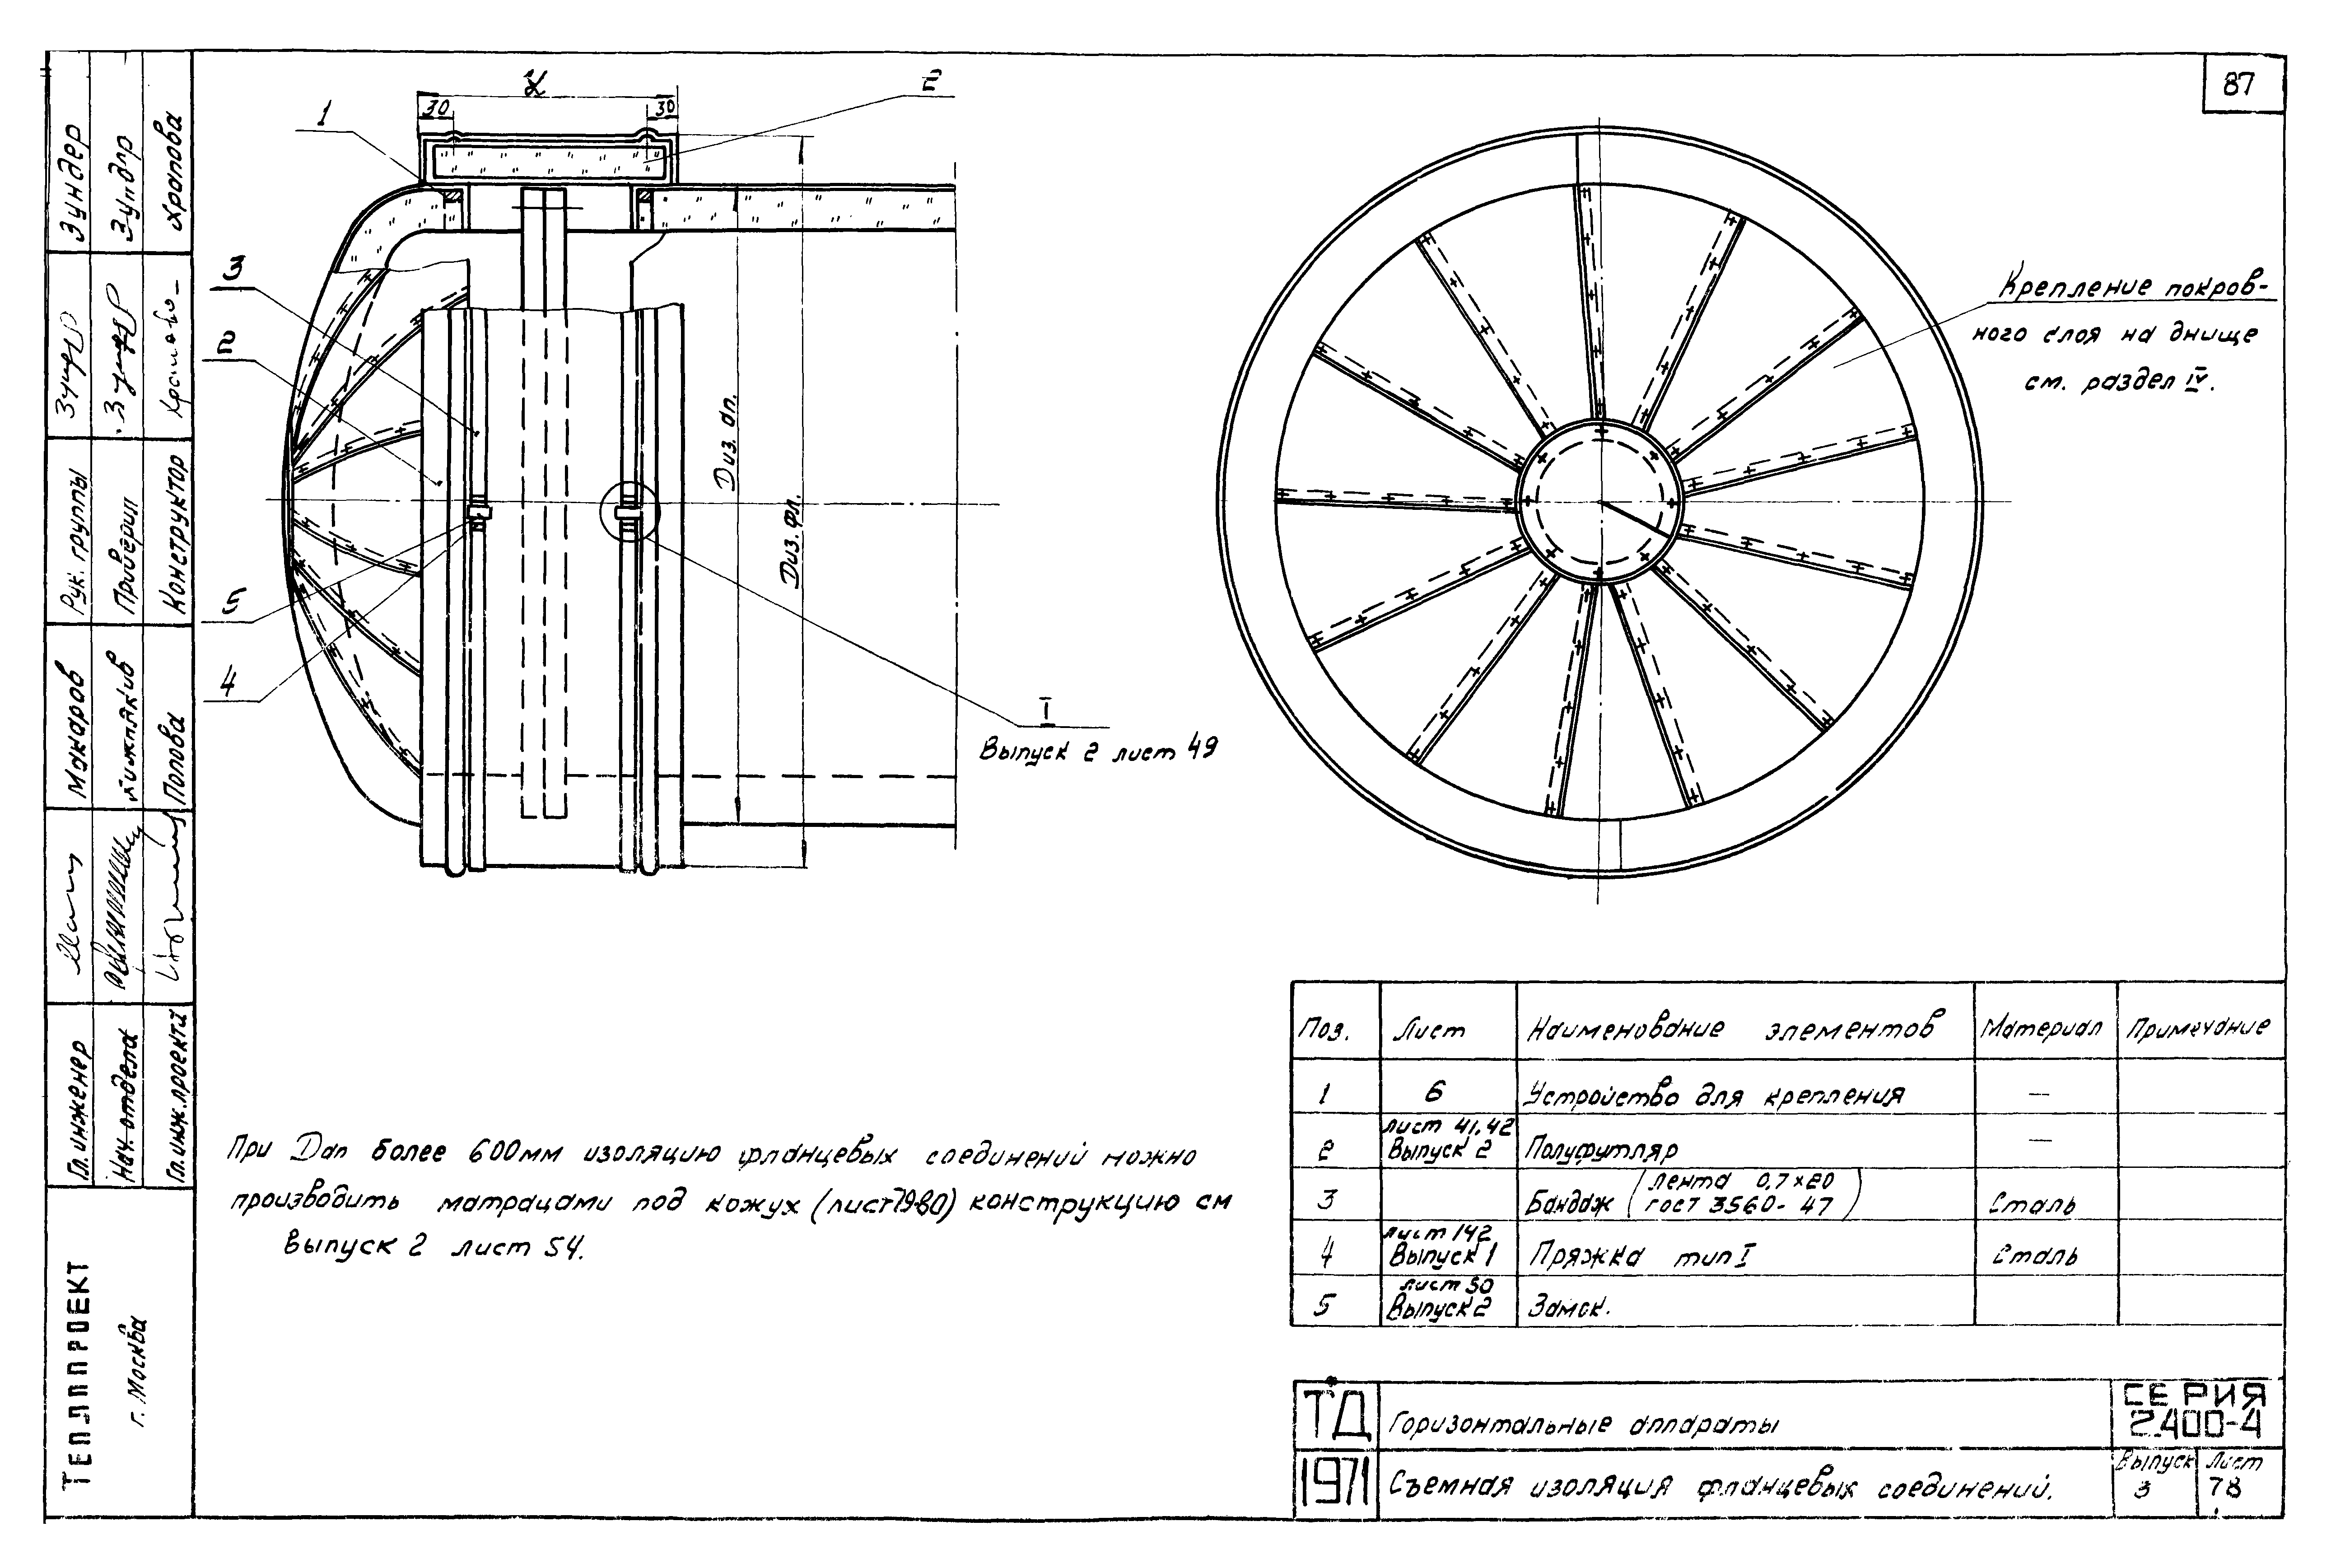 87
К
2
30
30
1
3
2
5
4
Dиз. ап.
Dиз. фл.
I
Выпуск 2 лист 49
Крепление покров-
ного слоя на днище
см. раздел IV.
При Dап более 600мм изоляцию фланцевых соединений можно
производить матрацами под кожух (лист 79-80) конструкцию см
Выпуск 2 лист 54.
Поз. Лист Наименование элементов Материал Примечание
1 6 Устройство для крепления —
2 лист 41,42 Выпуск 2 Полуфутляр —
3 Бандаж (лента 0,7×20 гост 3560-47) Сталь
4 лист 142 Выпуск 1 Пряжка тип I Сталь
5 лист 50 Выпуск 2 Замок.
ТД Горизонтальные аппараты СЕРИЯ 2.400-4
1971 Съемная изоляция фланцевых соединений. Выпуск 3 Лист 78
Гл. инженер Макаров Рук. группы Зундер
Нач. отдела Проверил
Гл. инж. проекта Попова Конструктор Храпова
ТЕПЛОПРОЕКТ
г. Москва